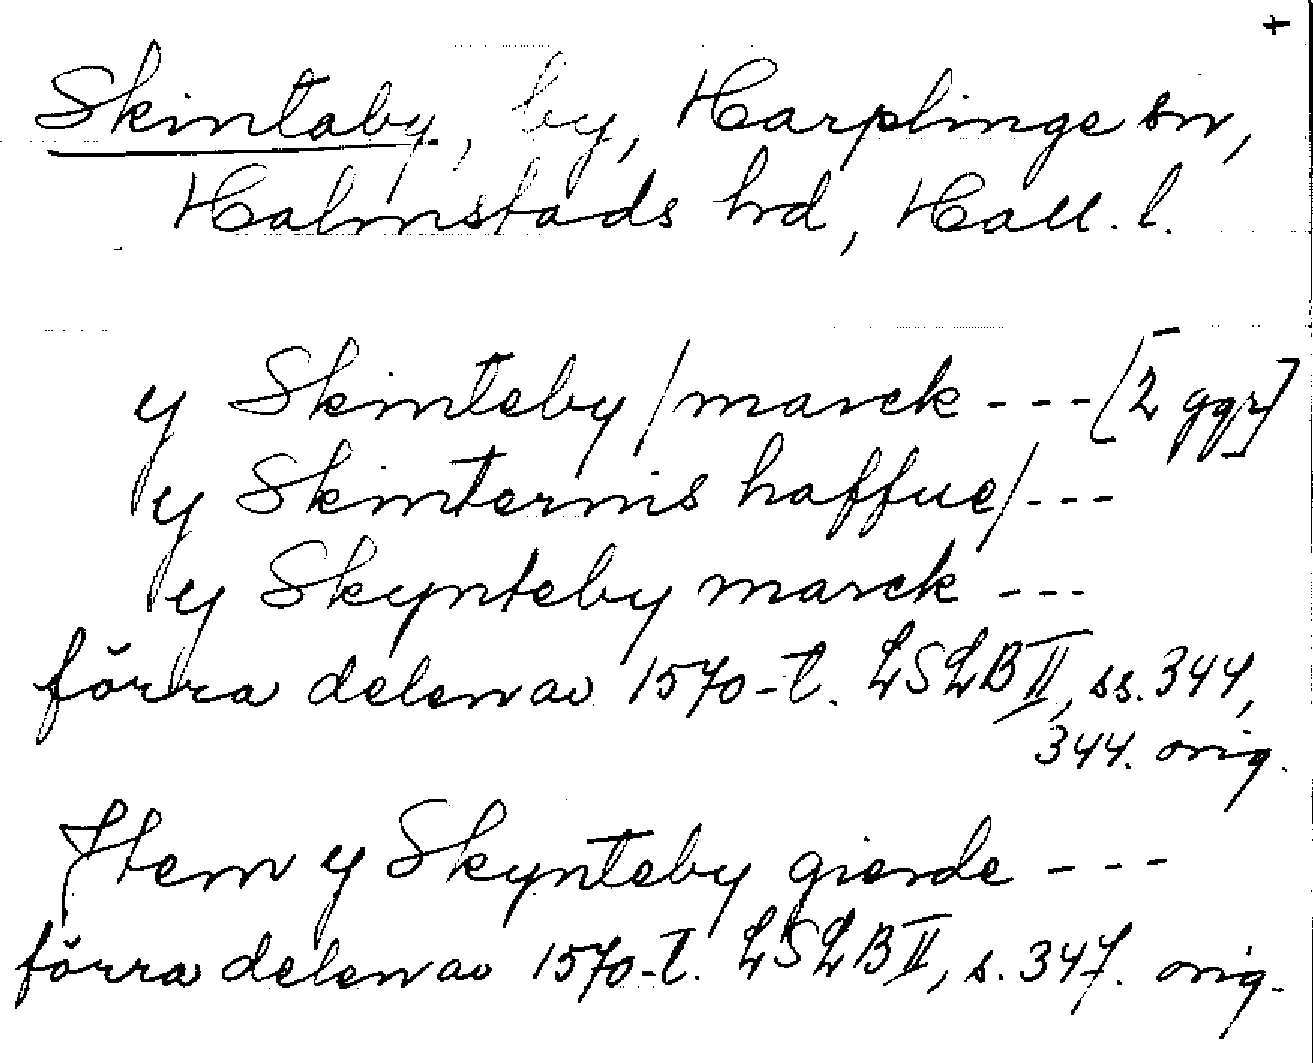 +
Skintaby, by, Harplinge sn,
Halmstads hd, Hall. l.
y Skinteby / marck --- [2 ggr]
y Skinternis haffue / ---
y Skynteby marck ---
förra delen av 1570-t. LSLB II, ss. 344,
344. orig.
Item y Skynteby gierde ---
förra delen av 1570-t. LSLB II, s. 347. orig.